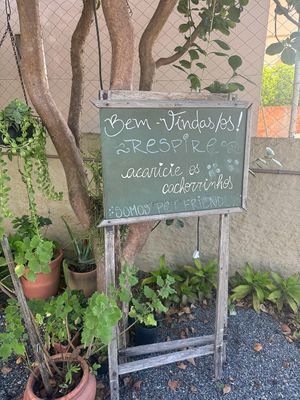 Bem-Vindas/es!
RESPIRE
acaricie os
cachorrinhos
SOMOS PET FRIENDLY